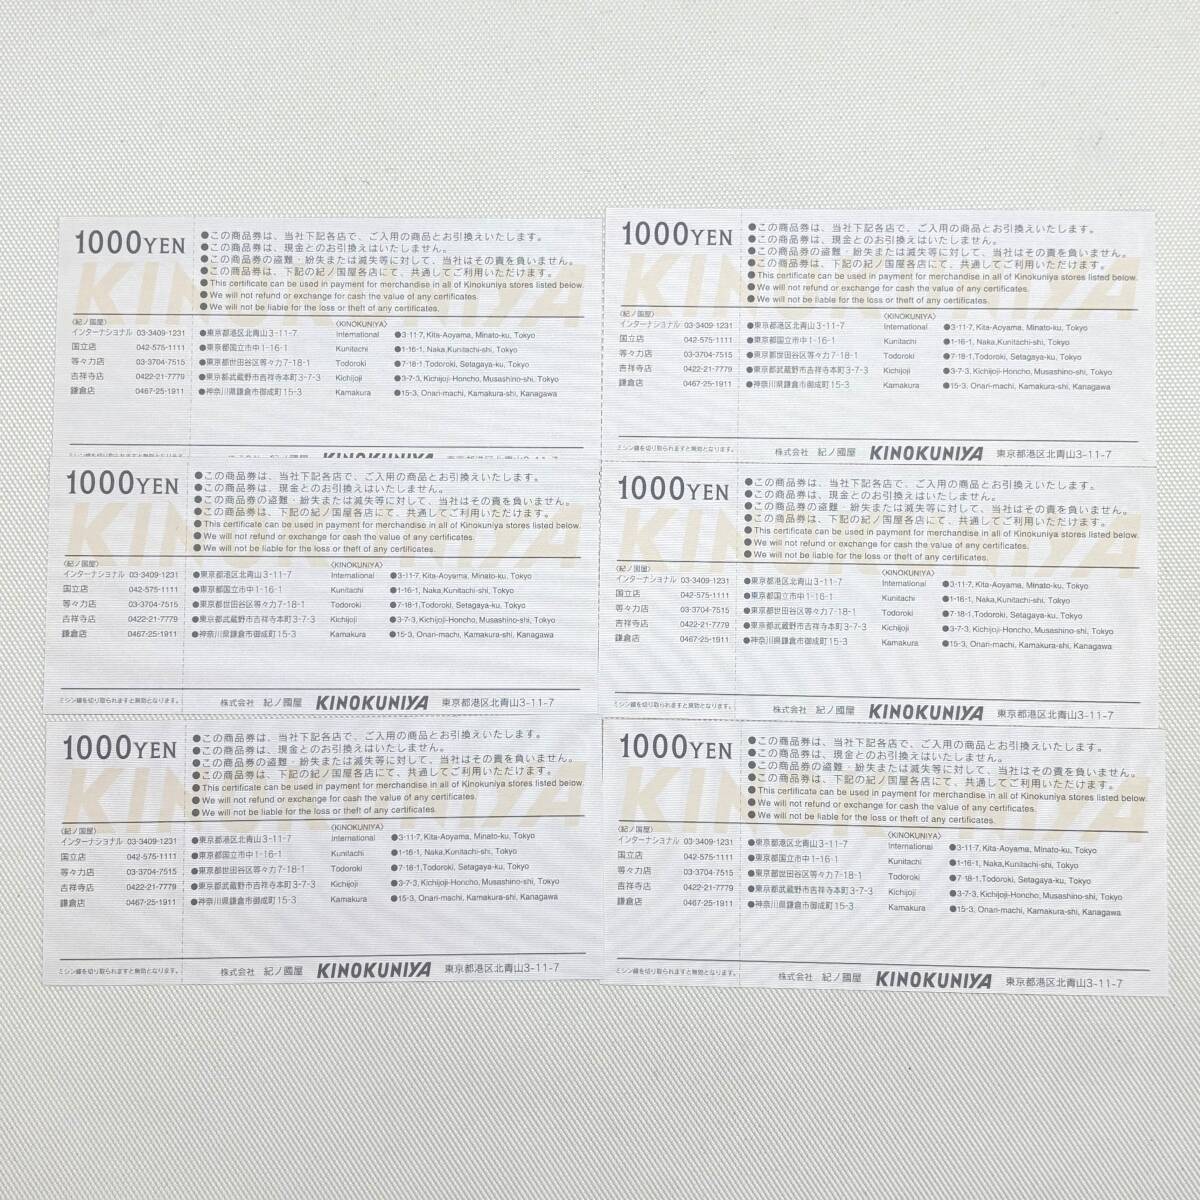 1000YEN
●この商品券は、当社下記各店で、ご入用の商品とお引換えいたします。
●この商品券は、現金とのお引換えはいたしません。
●この商品券の盗難・紛失または滅失等に対して、当社はその責を負いません。
●この商品券は、下記の紀ノ国屋各店にて、共通してご利用いただけます。
●This certificate can be used in payment for merchandise in all of Kinokuniya stores listed below.
●We will not refund or exchange for cash the value of any certificates.
●We will not be liable for the loss or theft of any certificates.
KINOKUNIYA
〈紀ノ国屋〉 〈KINOKUNIYA〉
インターナショナル 03-3409-1231 ●東京都港区北青山3-11-7 International ●3-11-7, Kita-Aoyama, Minato-ku, Tokyo
国立店 042-575-1111 ●東京都国立市中1-16-1 Kunitachi ●1-16-1, Naka,Kunitachi-shi, Tokyo
等々力店 03-3704-7515 ●東京都世田谷区等々力7-18-1 Todoroki ●7-18-1,Todoroki, Setagaya-ku, Tokyo
吉祥寺店 0422-21-7779 ●東京都武蔵野市吉祥寺本町3-7-3 Kichijoji ●3-7-3, Kichijoji-Honcho, Musashino-shi, Tokyo
鎌倉店 0467-25-1911 ●神奈川県鎌倉市御成町15-3 Kamakura ●15-3, Onari-machi, Kamakura-shi, Kanagawa
ミシン線を切り取られますと無効となります。 株式会社 紀ノ國屋 KINOKUNIYA 東京都港区北青山3-11-7
1000YEN
●この商品券は、当社下記各店で、ご入用の商品とお引換えいたします。
●この商品券は、現金とのお引換えはいたしません。
●この商品券の盗難・紛失または滅失等に対して、当社はその責を負いません。
●この商品券は、下記の紀ノ国屋各店にて、共通してご利用いただけます。
●This certificate can be used in payment for merchandise in all of Kinokuniya stores listed below.
●We will not refund or exchange for cash the value of any certificates.
●We will not be liable for the loss or theft of any certificates.
KINOKUNIYA
〈紀ノ国屋〉 〈KINOKUNIYA〉
インターナショナル 03-3409-1231 ●東京都港区北青山3-11-7 International ●3-11-7, Kita-Aoyama, Minato-ku, Tokyo
国立店 042-575-1111 ●東京都国立市中1-16-1 Kunitachi ●1-16-1, Naka,Kunitachi-shi, Tokyo
等々力店 03-3704-7515 ●東京都世田谷区等々力7-18-1 Todoroki ●7-18-1,Todoroki, Setagaya-ku, Tokyo
吉祥寺店 0422-21-7779 ●東京都武蔵野市吉祥寺本町3-7-3 Kichijoji ●3-7-3, Kichijoji-Honcho, Musashino-shi, Tokyo
鎌倉店 0467-25-1911 ●神奈川県鎌倉市御成町15-3 Kamakura ●15-3, Onari-machi, Kamakura-shi, Kanagawa
ミシン線を切り取られますと無効となります。 株式会社 紀ノ國屋 KINOKUNIYA 東京都港区北青山3-11-7
1000YEN
●この商品券は、当社下記各店で、ご入用の商品とお引換えいたします。
●この商品券は、現金とのお引換えはいたしません。
●この商品券の盗難・紛失または滅失等に対して、当社はその責を負いません。
●この商品券は、下記の紀ノ国屋各店にて、共通してご利用いただけます。
●This certificate can be used in payment for merchandise in all of Kinokuniya stores listed below.
●We will not refund or exchange for cash the value of any certificates.
●We will not be liable for the loss or theft of any certificates.
KINOKUNIYA
〈紀ノ国屋〉 〈KINOKUNIYA〉
インターナショナル 03-3409-1231 ●東京都港区北青山3-11-7 International ●3-11-7, Kita-Aoyama, Minato-ku, Tokyo
国立店 042-575-1111 ●東京都国立市中1-16-1 Kunitachi ●1-16-1, Naka,Kunitachi-shi, Tokyo
等々力店 03-3704-7515 ●東京都世田谷区等々力7-18-1 Todoroki ●7-18-1,Todoroki, Setagaya-ku, Tokyo
吉祥寺店 0422-21-7779 ●東京都武蔵野市吉祥寺本町3-7-3 Kichijoji ●3-7-3, Kichijoji-Honcho, Musashino-shi, Tokyo
鎌倉店 0467-25-1911 ●神奈川県鎌倉市御成町15-3 Kamakura ●15-3, Onari-machi, Kamakura-shi, Kanagawa
ミシン線を切り取られますと無効となります。 株式会社 紀ノ國屋 KINOKUNIYA 東京都港区北青山3-11-7
1000YEN
●この商品券は、当社下記各店で、ご入用の商品とお引換えいたします。
●この商品券は、現金とのお引換えはいたしません。
●この商品券の盗難・紛失または滅失等に対して、当社はその責を負いません。
●この商品券は、下記の紀ノ国屋各店にて、共通してご利用いただけます。
●This certificate can be used in payment for merchandise in all of Kinokuniya stores listed below.
●We will not refund or exchange for cash the value of any certificates.
●We will not be liable for the loss or theft of any certificates.
KINOKUNIYA
〈紀ノ国屋〉 〈KINOKUNIYA〉
インターナショナル 03-3409-1231 ●東京都港区北青山3-11-7 International ●3-11-7, Kita-Aoyama, Minato-ku, Tokyo
国立店 042-575-1111 ●東京都国立市中1-16-1 Kunitachi ●1-16-1, Naka,Kunitachi-shi, Tokyo
等々力店 03-3704-7515 ●東京都世田谷区等々力7-18-1 Todoroki ●7-18-1,Todoroki, Setagaya-ku, Tokyo
吉祥寺店 0422-21-7779 ●東京都武蔵野市吉祥寺本町3-7-3 Kichijoji ●3-7-3, Kichijoji-Honcho, Musashino-shi, Tokyo
鎌倉店 0467-25-1911 ●神奈川県鎌倉市御成町15-3 Kamakura ●15-3, Onari-machi, Kamakura-shi, Kanagawa
ミシン線を切り取られますと無効となります。 株式会社 紀ノ國屋 KINOKUNIYA 東京都港区北青山3-11-7
1000YEN
●この商品券は、当社下記各店で、ご入用の商品とお引換えいたします。
●この商品券は、現金とのお引換えはいたしません。
●この商品券の盗難・紛失または滅失等に対して、当社はその責を負いません。
●この商品券は、下記の紀ノ国屋各店にて、共通してご利用いただけます。
●This certificate can be used in payment for merchandise in all of Kinokuniya stores listed below.
●We will not refund or exchange for cash the value of any certificates.
●We will not be liable for the loss or theft of any certificates.
KINOKUNIYA
〈紀ノ国屋〉 〈KINOKUNIYA〉
インターナショナル 03-3409-1231 ●東京都港区北青山3-11-7 International ●3-11-7, Kita-Aoyama, Minato-ku, Tokyo
国立店 042-575-1111 ●東京都国立市中1-16-1 Kunitachi ●1-16-1, Naka,Kunitachi-shi, Tokyo
等々力店 03-3704-7515 ●東京都世田谷区等々力7-18-1 Todoroki ●7-18-1,Todoroki, Setagaya-ku, Tokyo
吉祥寺店 0422-21-7779 ●東京都武蔵野市吉祥寺本町3-7-3 Kichijoji ●3-7-3, Kichijoji-Honcho, Musashino-shi, Tokyo
鎌倉店 0467-25-1911 ●神奈川県鎌倉市御成町15-3 Kamakura ●15-3, Onari-machi, Kamakura-shi, Kanagawa
ミシン線を切り取られますと無効となります。 株式会社 紀ノ國屋 KINOKUNIYA 東京都港区北青山3-11-7
1000YEN
●この商品券は、当社下記各店で、ご入用の商品とお引換えいたします。
●この商品券は、現金とのお引換えはいたしません。
●この商品券の盗難・紛失または滅失等に対して、当社はその責を負いません。
●この商品券は、下記の紀ノ国屋各店にて、共通してご利用いただけます。
●This certificate can be used in payment for merchandise in all of Kinokuniya stores listed below.
●We will not refund or exchange for cash the value of any certificates.
●We will not be liable for the loss or theft of any certificates.
KINOKUNIYA
〈紀ノ国屋〉 〈KINOKUNIYA〉
インターナショナル 03-3409-1231 ●東京都港区北青山3-11-7 International ●3-11-7, Kita-Aoyama, Minato-ku, Tokyo
国立店 042-575-1111 ●東京都国立市中1-16-1 Kunitachi ●1-16-1, Naka,Kunitachi-shi, Tokyo
等々力店 03-3704-7515 ●東京都世田谷区等々力7-18-1 Todoroki ●7-18-1,Todoroki, Setagaya-ku, Tokyo
吉祥寺店 0422-21-7779 ●東京都武蔵野市吉祥寺本町3-7-3 Kichijoji ●3-7-3, Kichijoji-Honcho, Musashino-shi, Tokyo
鎌倉店 0467-25-1911 ●神奈川県鎌倉市御成町15-3 Kamakura ●15-3, Onari-machi, Kamakura-shi, Kanagawa
ミシン線を切り取られますと無効となります。 株式会社 紀ノ國屋 KINOKUNIYA 東京都港区北青山3-11-7